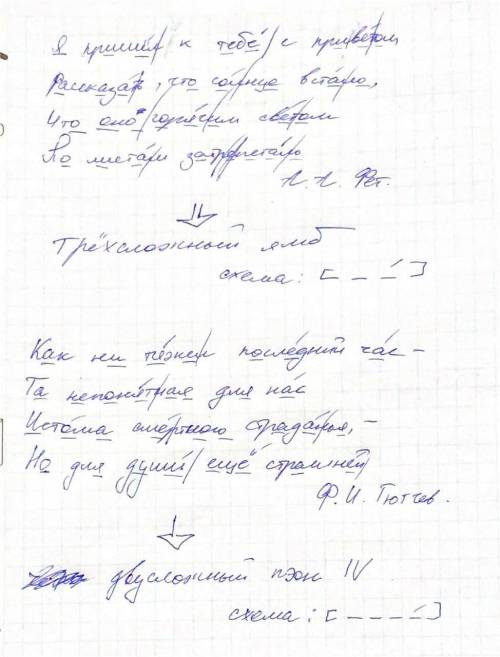 Я пришёл к тебе́ с приве́том
Рассказа́ть, что со́лнце вста́ло,
Что оно́ горя́чим све́том
По листа́м затрепета́ло
А. А. Фет.
трёхсложный ямб
схема: [ _ _ _́ ]
Как ни тя́жел после́дний ча́с –
Та непоня́тная для на́с
Исто́ма сме́ртного страда́нья, –
Но для души́ ещё страшне́й
Ф. И. Тютчев.
двусложный пэон IV
схема: [ _ _ _ _́ ]